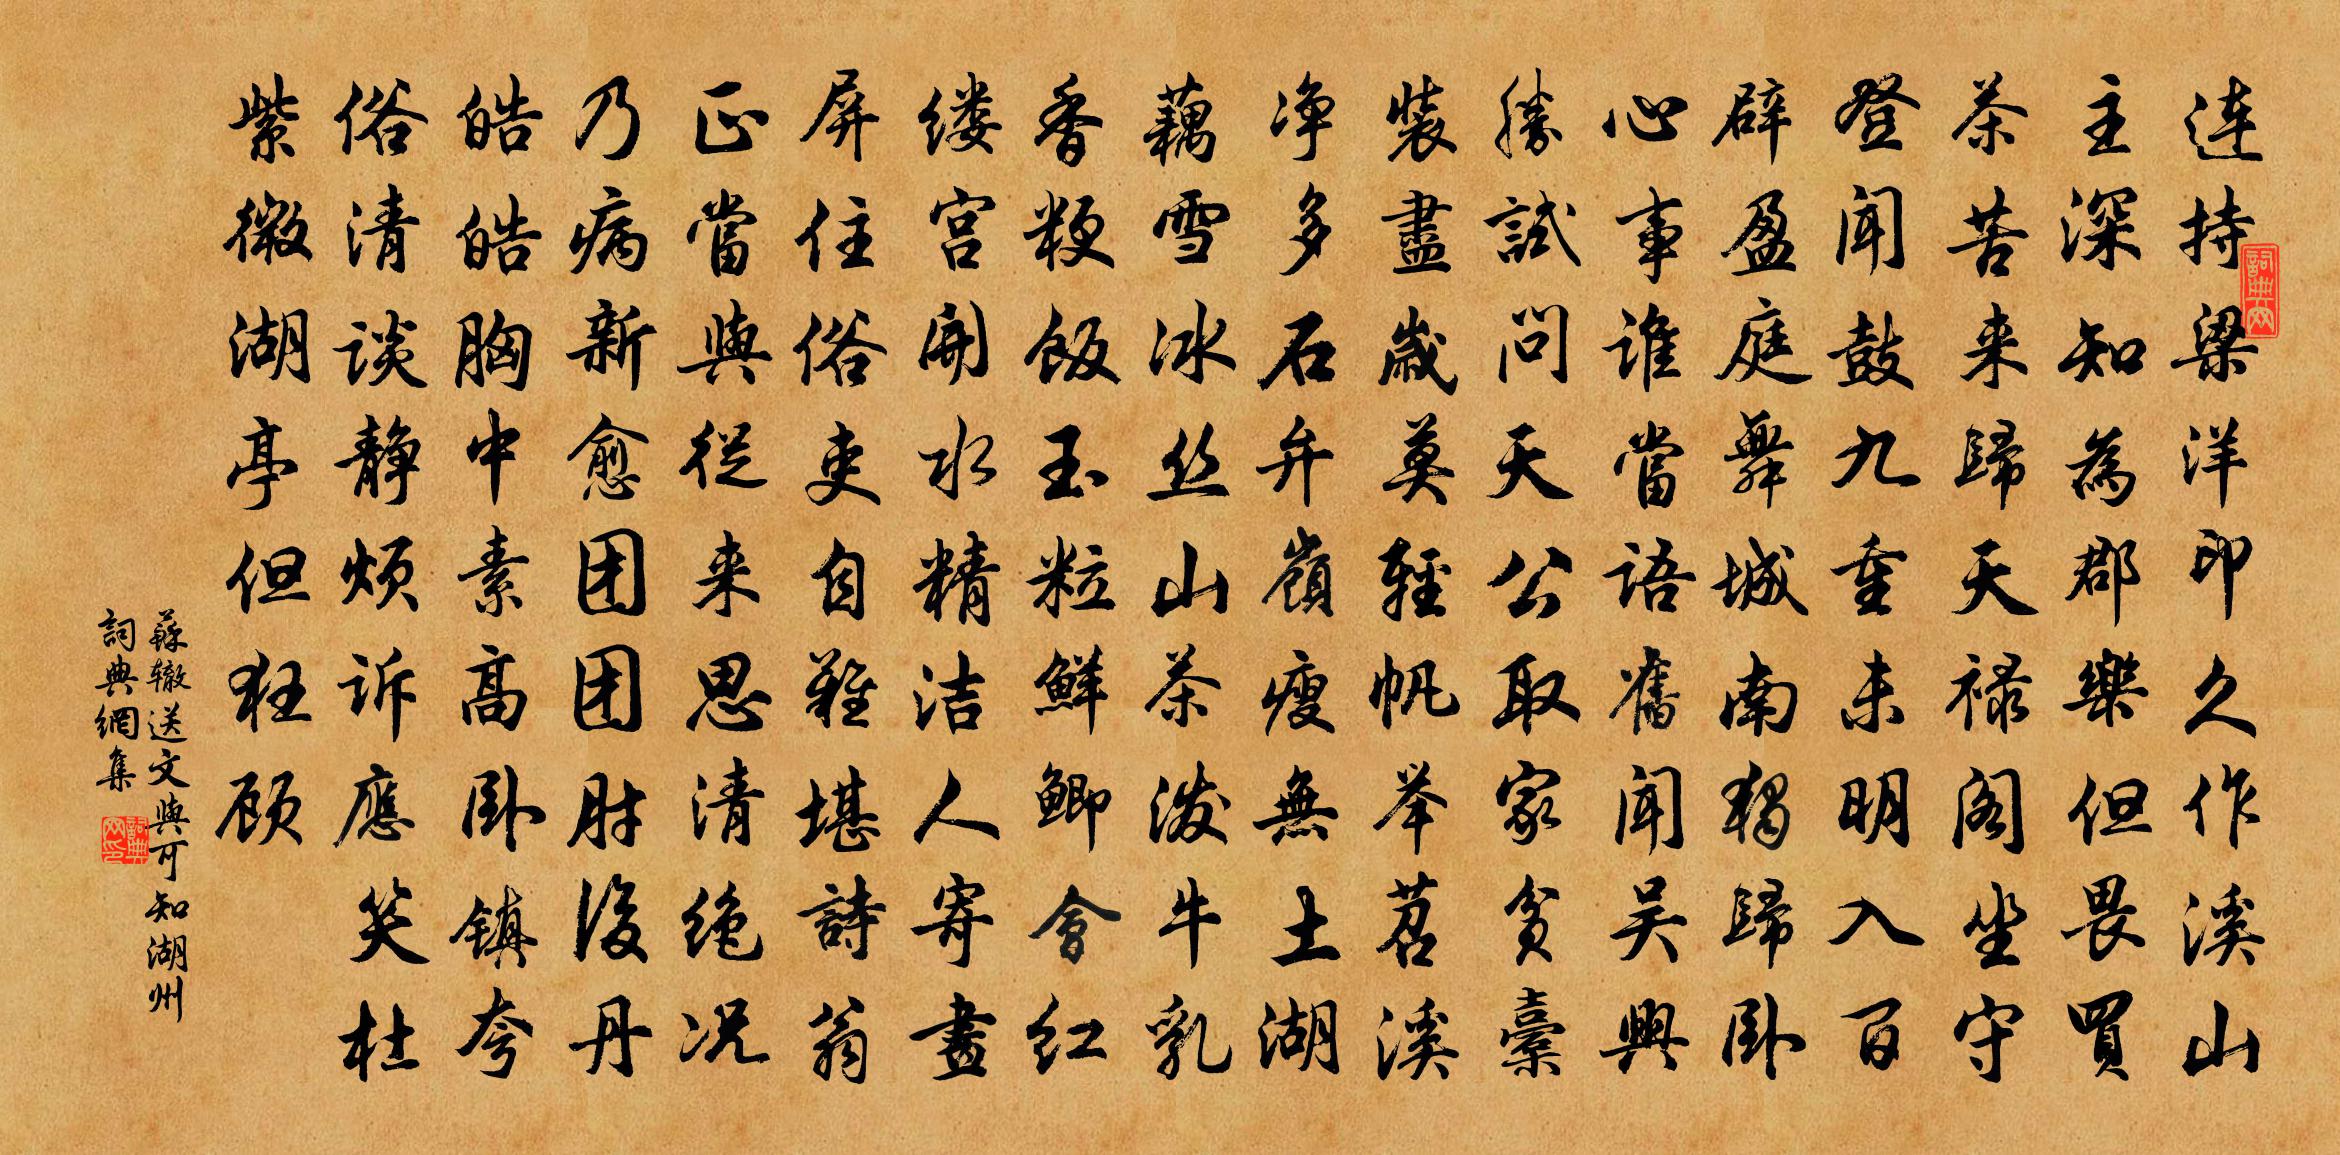 连持梁洋印久作溪山
主深知為郡樂但畏買
茶苦来歸天禄阁坐守
登闻鼓九重未明入百
辟盈庭舞城南独歸卧
心事谁當语舊闻吴興
勝試问天公取家贫橐
裝盡歲莫轻帆举苕溪
净多石弁嶺瘦無土湖
藕雪冰丝山茶泼牛乳
香粳飯玉粒鮮鲫會红
缕宫開水精洁人寄畫
屏住俗吏自難堪詩翁
正當與從来思清绝况
乃病新愈团团肘後丹
皓皓胸中素高卧镇夸
俗清谈静烦诉應笑杜
紫微湖亭但狂顾
蘇辙送文與可知湖州
詞典網集
詞典网
詞典网印